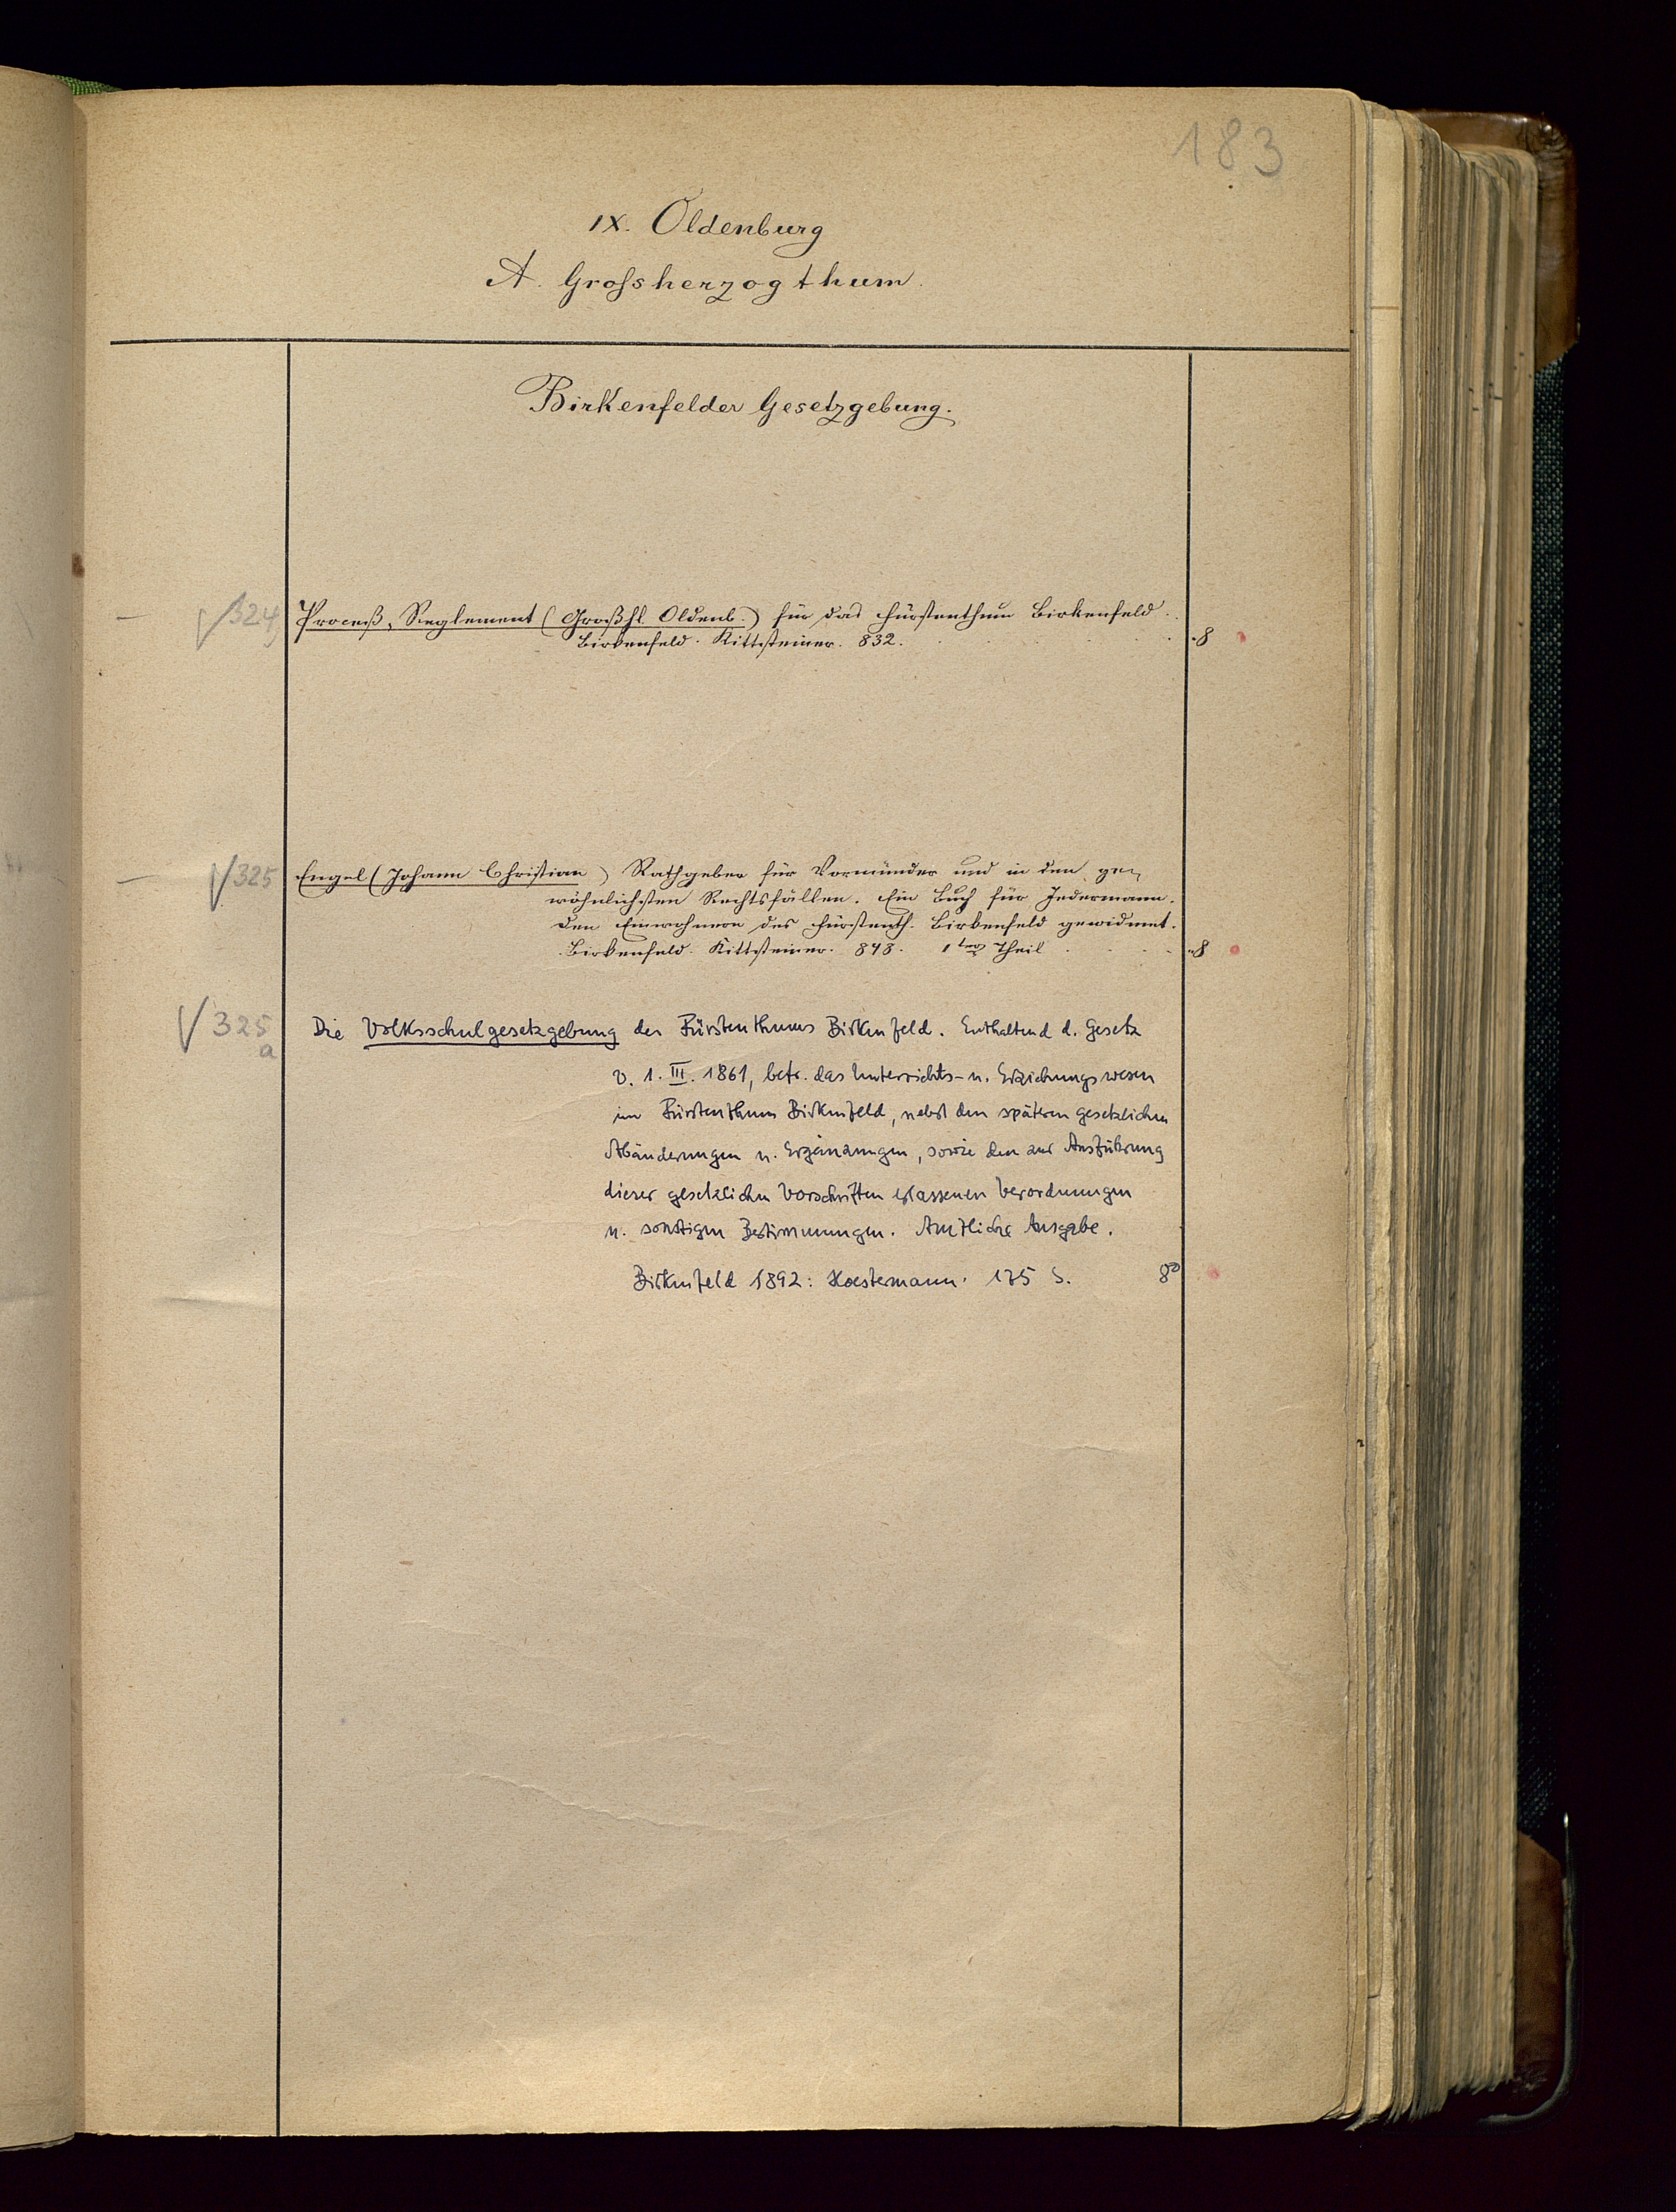 183
IX. Oldenburg
A. Grossherzogthum.
Birkenfelder Gesetzgebung.
324 Proceß-Reglement (Großhl. Oldenb.) für das Fürstenthum Birkenfeld.
Birkenfeld. Kittsteiner. 832. 8
325 Engel (Johann Christian) Rathgeber für Vormünder und in den ge-
wöhnlichsten Rechtsfällen. Ein Buch für Jedermann.
Den Einwohnern des Fürstenth. Birkenfeld gewidmet.
Birkenfeld. Kittsteiner. 848. 1ter Theil 8
325a Die Volksschulgesetzgebung des Fürstenthums Birkenfeld. Enthaltend d. Gesetz
v. 1. III. 1861, betr. das Unterrichts- u. Erziehungswesen
im Fürstenthum Birkenfeld, nebst den späteren gesetzlichen
Abänderungen u. Ergänzungen, sowie den zur Ausführung
dieser gesetzlichen Vorschriften erlassenen Verordnungen
u. sonstigen Bestimmungen. Amtliche Ausgabe.
Birkenfeld 1892: Koestermann. 175 S. 8°